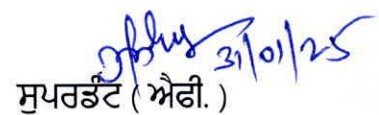 31/01/25
ਸੁਪਰਡੰਟ ( ਐਫੀ. )